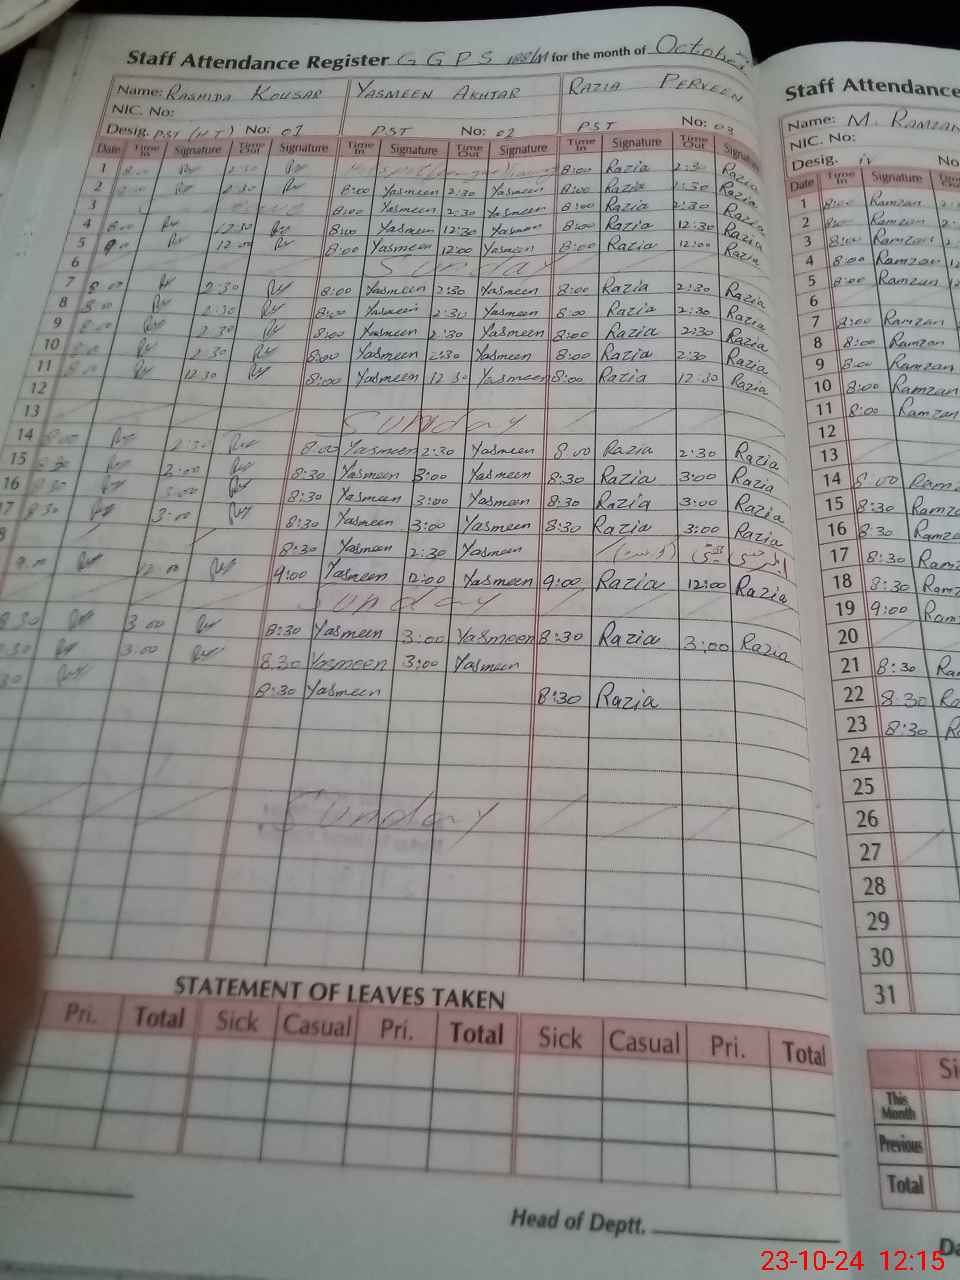 Staff Attendance Register G G P S for the month of October
Name: RASHIDA KOUSAR YASMEEN AKHTAR RAZIA PERVEEN
NIC. No:
Desig. PST (H.T) No: 01 PST No: 02 PST No: 03
Date Time In Signature Time Out Signature Time In Signature Time Out Signature Time In Signature Time Out Signature
1 8:00 2:30 8:00 Razia 2:30 Razia
2 2:30 8:00 Yasmeen 2:30 Yasmeen 8:00 Razia 2:30 Razia
3 8:00 Yasmeen 2:30 Yasmeen 8:00 Razia 2:30 Razia
4 8:00 12:30 8:00 Yasmeen 12:30 Yasmeen 8:00 Razia 12:30 Razia
5 12:00 8:00 Yasmeen 12:00 Yasmeen 8:00 Razia 12:00 Razia
6 Sunday
7 2:30 8:00 Yasmeen 2:30 Yasmeen 8:00 Razia 2:30 Razia
8 2:30 8:00 Yasmeen 2:30 Yasmeen 8:00 Razia 2:30 Razia
9 2:30 8:00 Yasmeen 2:30 Yasmeen 8:00 Razia 2:30 Razia
10 2:30 8:00 Yasmeen 2:30 Yasmeen 8:00 Razia 2:30 Razia
11 12:30 8:00 Yasmeen 12:30 Yasmeen 8:00 Razia 12:30 Razia
12
13 Sunday
14 8:00 2:30 8:00 Yasmeen 2:30 Yasmeen 8:00 Razia 2:30 Razia
15 8:30 3:00 8:30 Yasmeen 3:00 Yasmeen 8:30 Razia 3:00 Razia
16 8:30 3:00 8:30 Yasmeen 3:00 Yasmeen 8:30 Razia 3:00 Razia
17 8:30 3:00 8:30 Yasmeen 3:00 Yasmeen 8:30 Razia 3:00 Razia
8 8:30 Yasmeen 2:30 Yasmeen
9:00 12:00 9:00 Yasmeen 12:00 Yasmeen 9:00 Razia 12:00 Razia
Sunday
8:30 3:00 8:30 Yasmeen 3:00 Yasmeen 8:30 Razia 3:00 Razia
:30 3:00 8:30 Yasmeen 3:00 Yasmeen
30 8:30 Yasmeen 8:30 Razia
Sunday
STATEMENT OF LEAVES TAKEN
Pri. Total Sick Casual Pri. Total Sick Casual Pri. Total
Head of Deptt.
Staff Attendance
Name: M. Ramzan
NIC. No:
Desig. No
Date Time In Signature
1 8:00 Ramzan
2 8:00 Ramzan
3 8:00 Ramzan
4 8:00 Ramzan
5 8:00 Ramzan
6
7 8:00 Ramzan
8 8:00 Ramzan
9 8:00 Ramzan
10 8:00 Ramzan
11 8:00 Ramzan
12
13
14 8:00 Ramz
15 8:30 Ramza
16 8:30 Ramza
17 8:30 Ramz
18 8:30 Ramz
19 9:00 Ram
20
21 8:30 Ra
22 8:30 Ra
23 8:30 R
24
25
26
27
28
29
30
31
Si
This Month
Previous
Total
Da
23-10-24 12:15